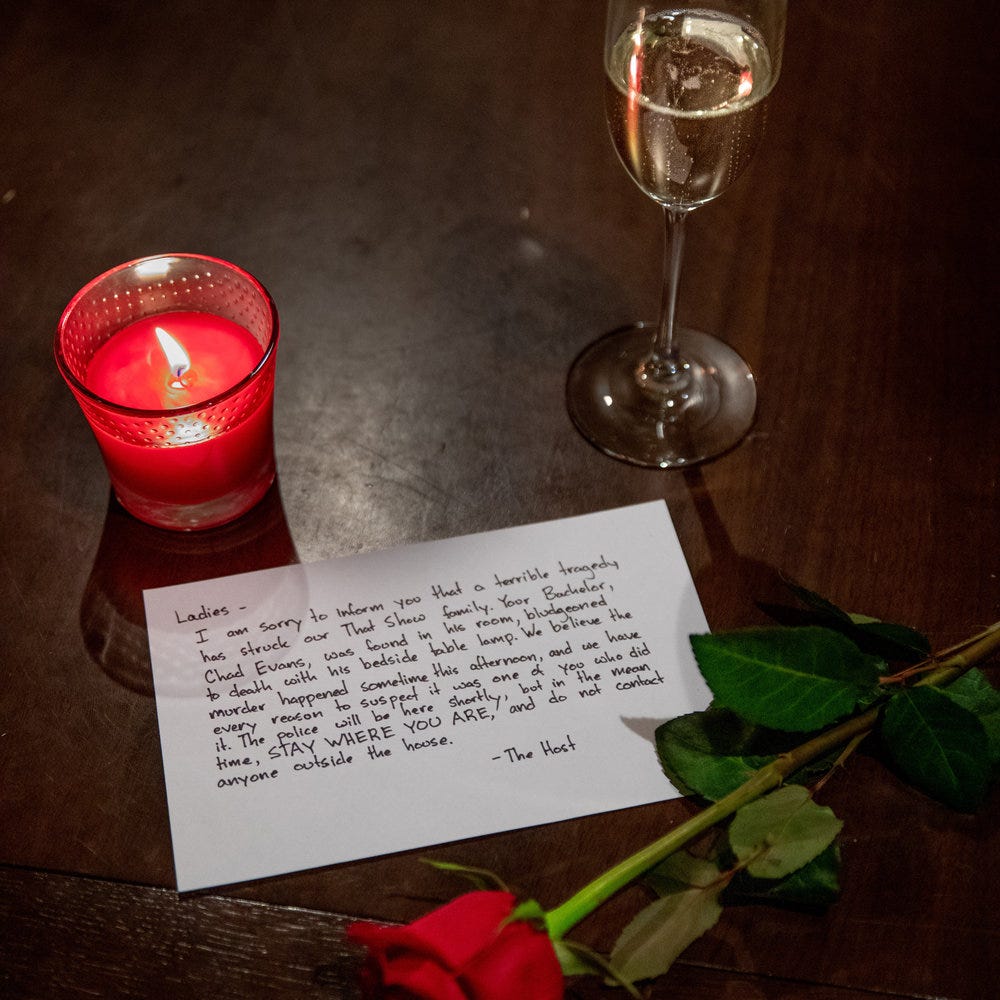 Ladies -
I am sorry to inform you that a terrible tragedy
has struck our That Show family. Your Bachelor,
Chad Evans, was found in his room, bludgeoned
to death with his bedside table lamp. We believe the
murder happened sometime this afternoon, and we have
every reason to suspect it was one of you who did
it. The police will be here shortly, but in the mean
time, STAY WHERE YOU ARE, and do not contact
anyone outside the house.
- The Host